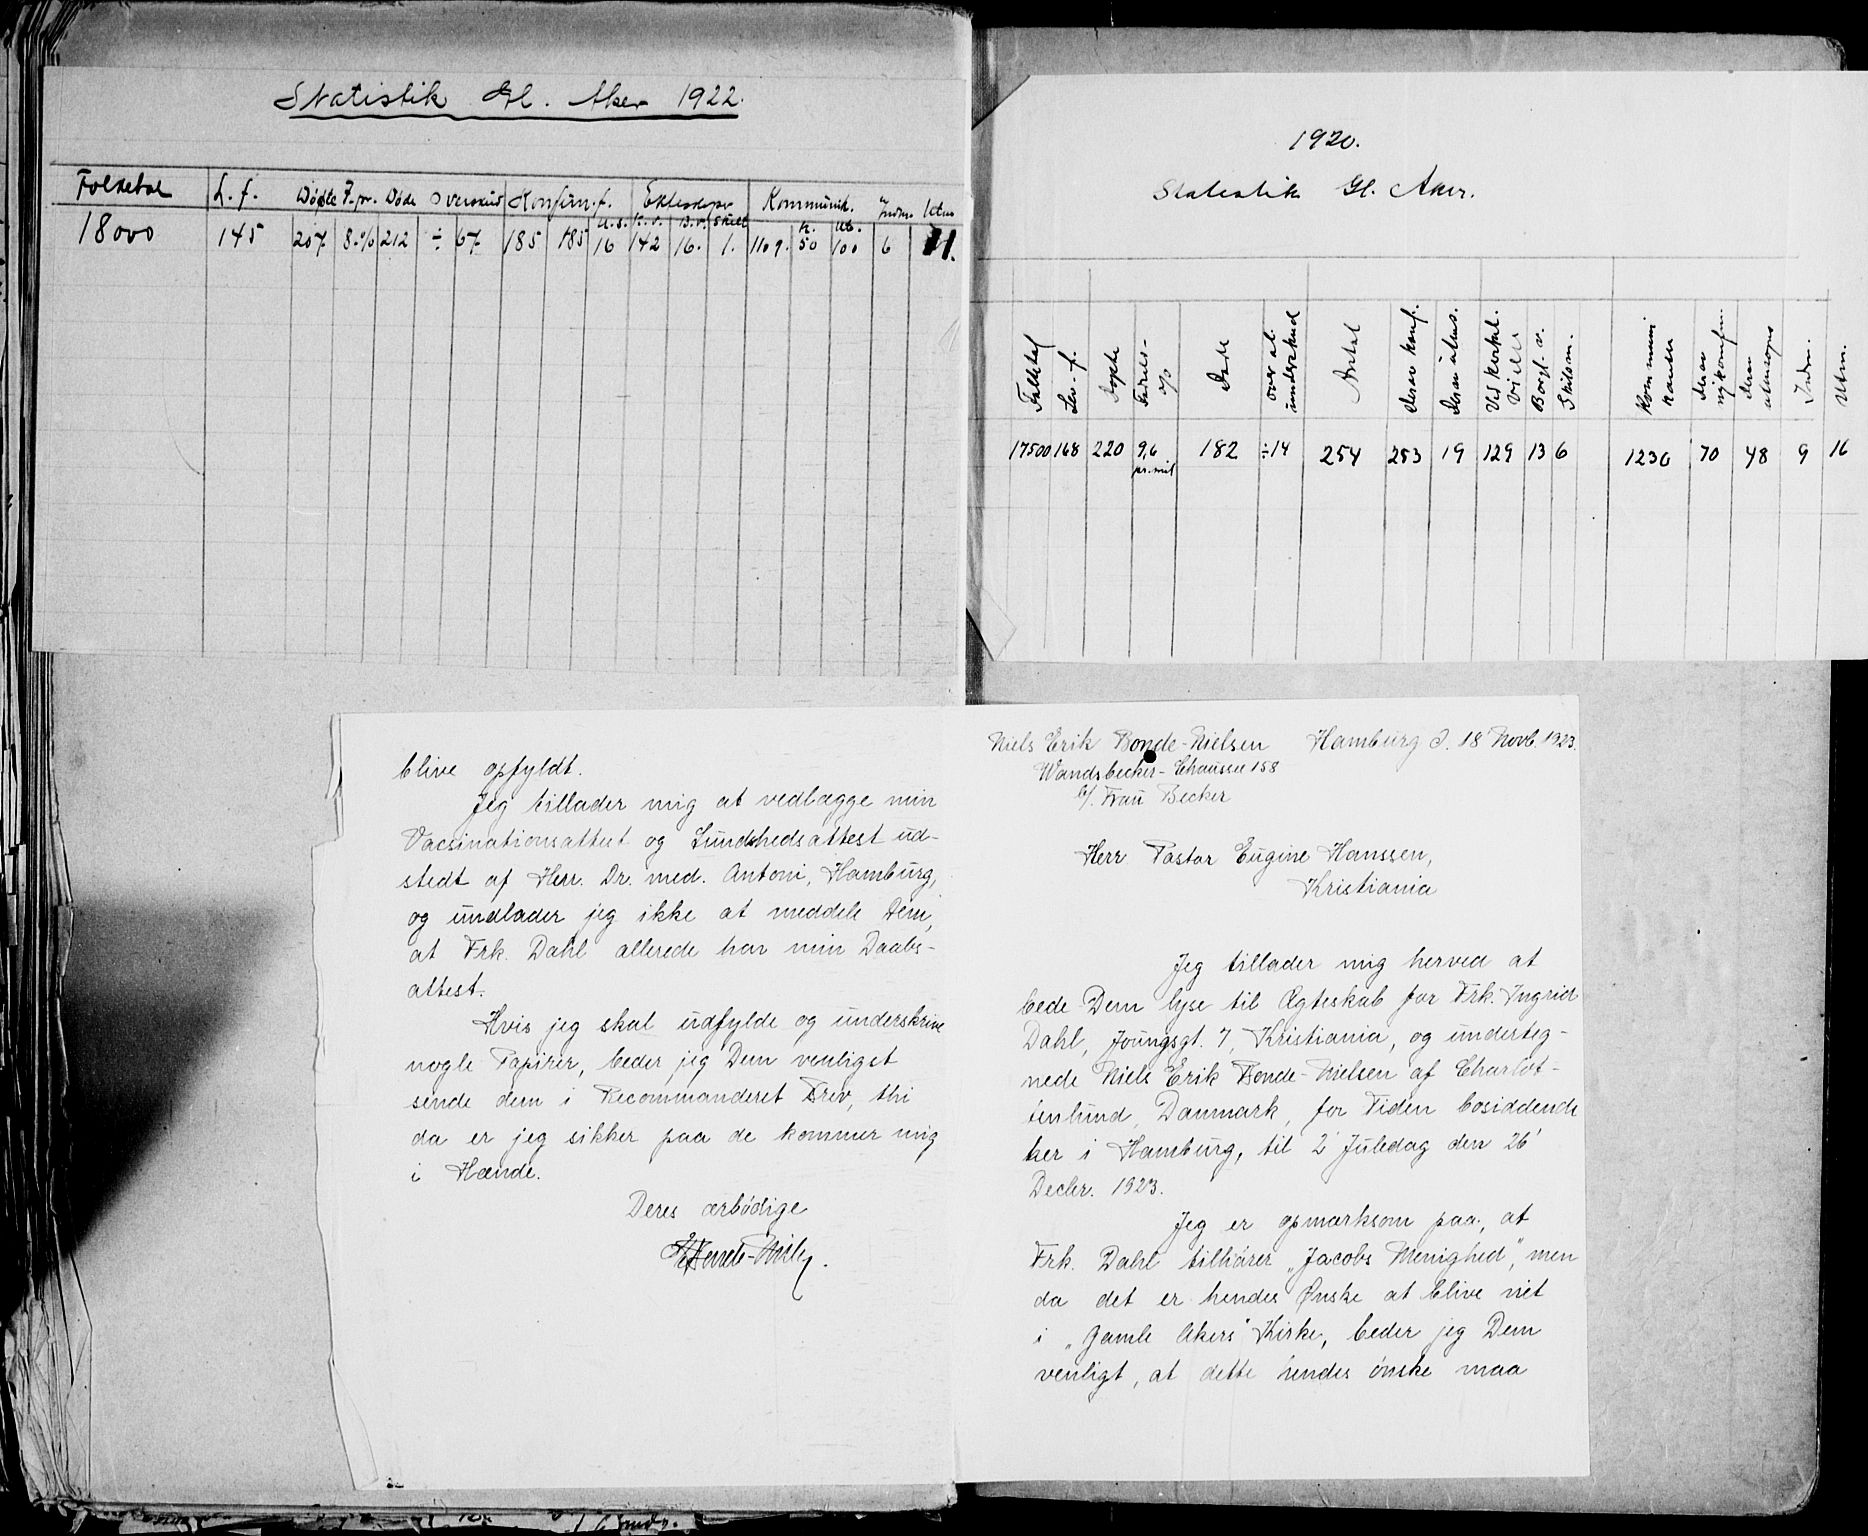 Statistik Gl. Aker 1922.
Folketal L. f. Døpte F. pr. Døde Overskud Konfirm. f. Ektesk. Kommunik. Indm. Utm.
U. s. K. v. B. v. Skilt K. Ut.
18000 145 207 8. % 212 ÷ 67 185 185 16 142 16. 1. 1109. 50 100 6 11.
1920.
Statestik Gl. Aker.
Folketal Lev. f. Døpte Døde over el. underskud Antal derav konf. derav utms. Ved kirkel. vielse Borgl. v. Skilsm. Kommuni kanter derav nykonfirm. derav utensogns Indm. Utm.
17500 168 220 9,6 182 ÷14 254 253 19 129 13 6 1230 70 48 9 16
pr. mil
Niels Erik Bonde-Nielsen Hamburg d. 18 Novb. 1923.
Wandsbecker-Chaussee 158
b/. Frau Becker
Herr Pastor Eugine Hanssen,
Kristiania
Jeg tillader mig herved at
bede Dem lyse til Ægteskab for Frk. Ingrid
Dahl, Joungsgt. 7, Kristiania, og underteg-
nede Niels Erik Bonde-Nielsen af Charlot-
tenlund, Danmark, for Tiden bosiddende
her i Hamburg, til 2' Juledag den 26'
Decbr. 1923.
Jeg er opmærksom paa, at
Frk. Dahl tilhører „Jacobs Menighed", men
da det er hendes Ønske at blive viet
i „Gamle Akers" Kirke, beder jeg Dem
venligt, at dette hendes ønske maa
blive opfyldt.
Jeg tillader mig at vedlægge min
Vacsinationsattest og Sundshedsattest ud-
stedt af Herr. Dr. med. Antoni, Hamburg,
og undlader jeg ikke at meddele Dem,
at Frk. Dahl allerede har min Daabs-
attest.
Hvis jeg skal udfylde og underskrive
nogle Papirer, beder jeg Dem venligst
sende dem i Recommanderet Brev, thi
da er jeg sikker paa de kommer mig
i Hænde.
Deres ærbødige
Bonde-Nielsen.